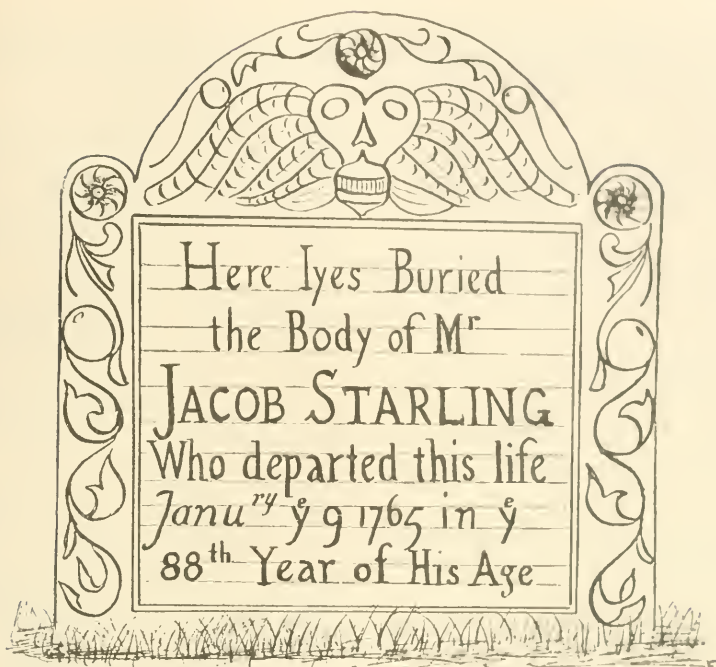 Here lyes Buried
the Body of Mʳ
JACOB STARLING
Who departed this life
Januʳʸ yͤ 9 1765 in yͤ
88ᵗʰ Year of His Age